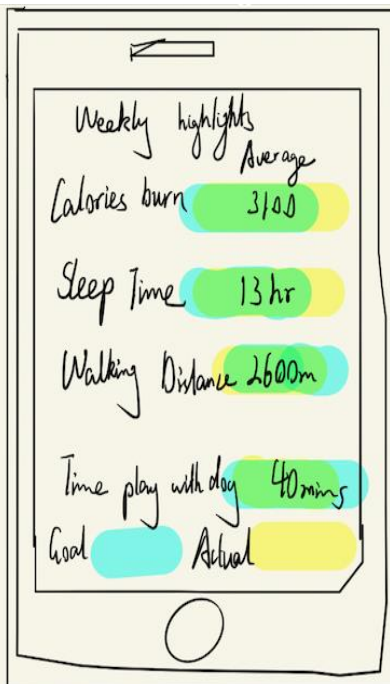 Weekly highlights
Average
Calories burn 3100
Sleep Time 13 hr
Walking Distance 2600m
Time play with dog 40 mins
Goal Actual